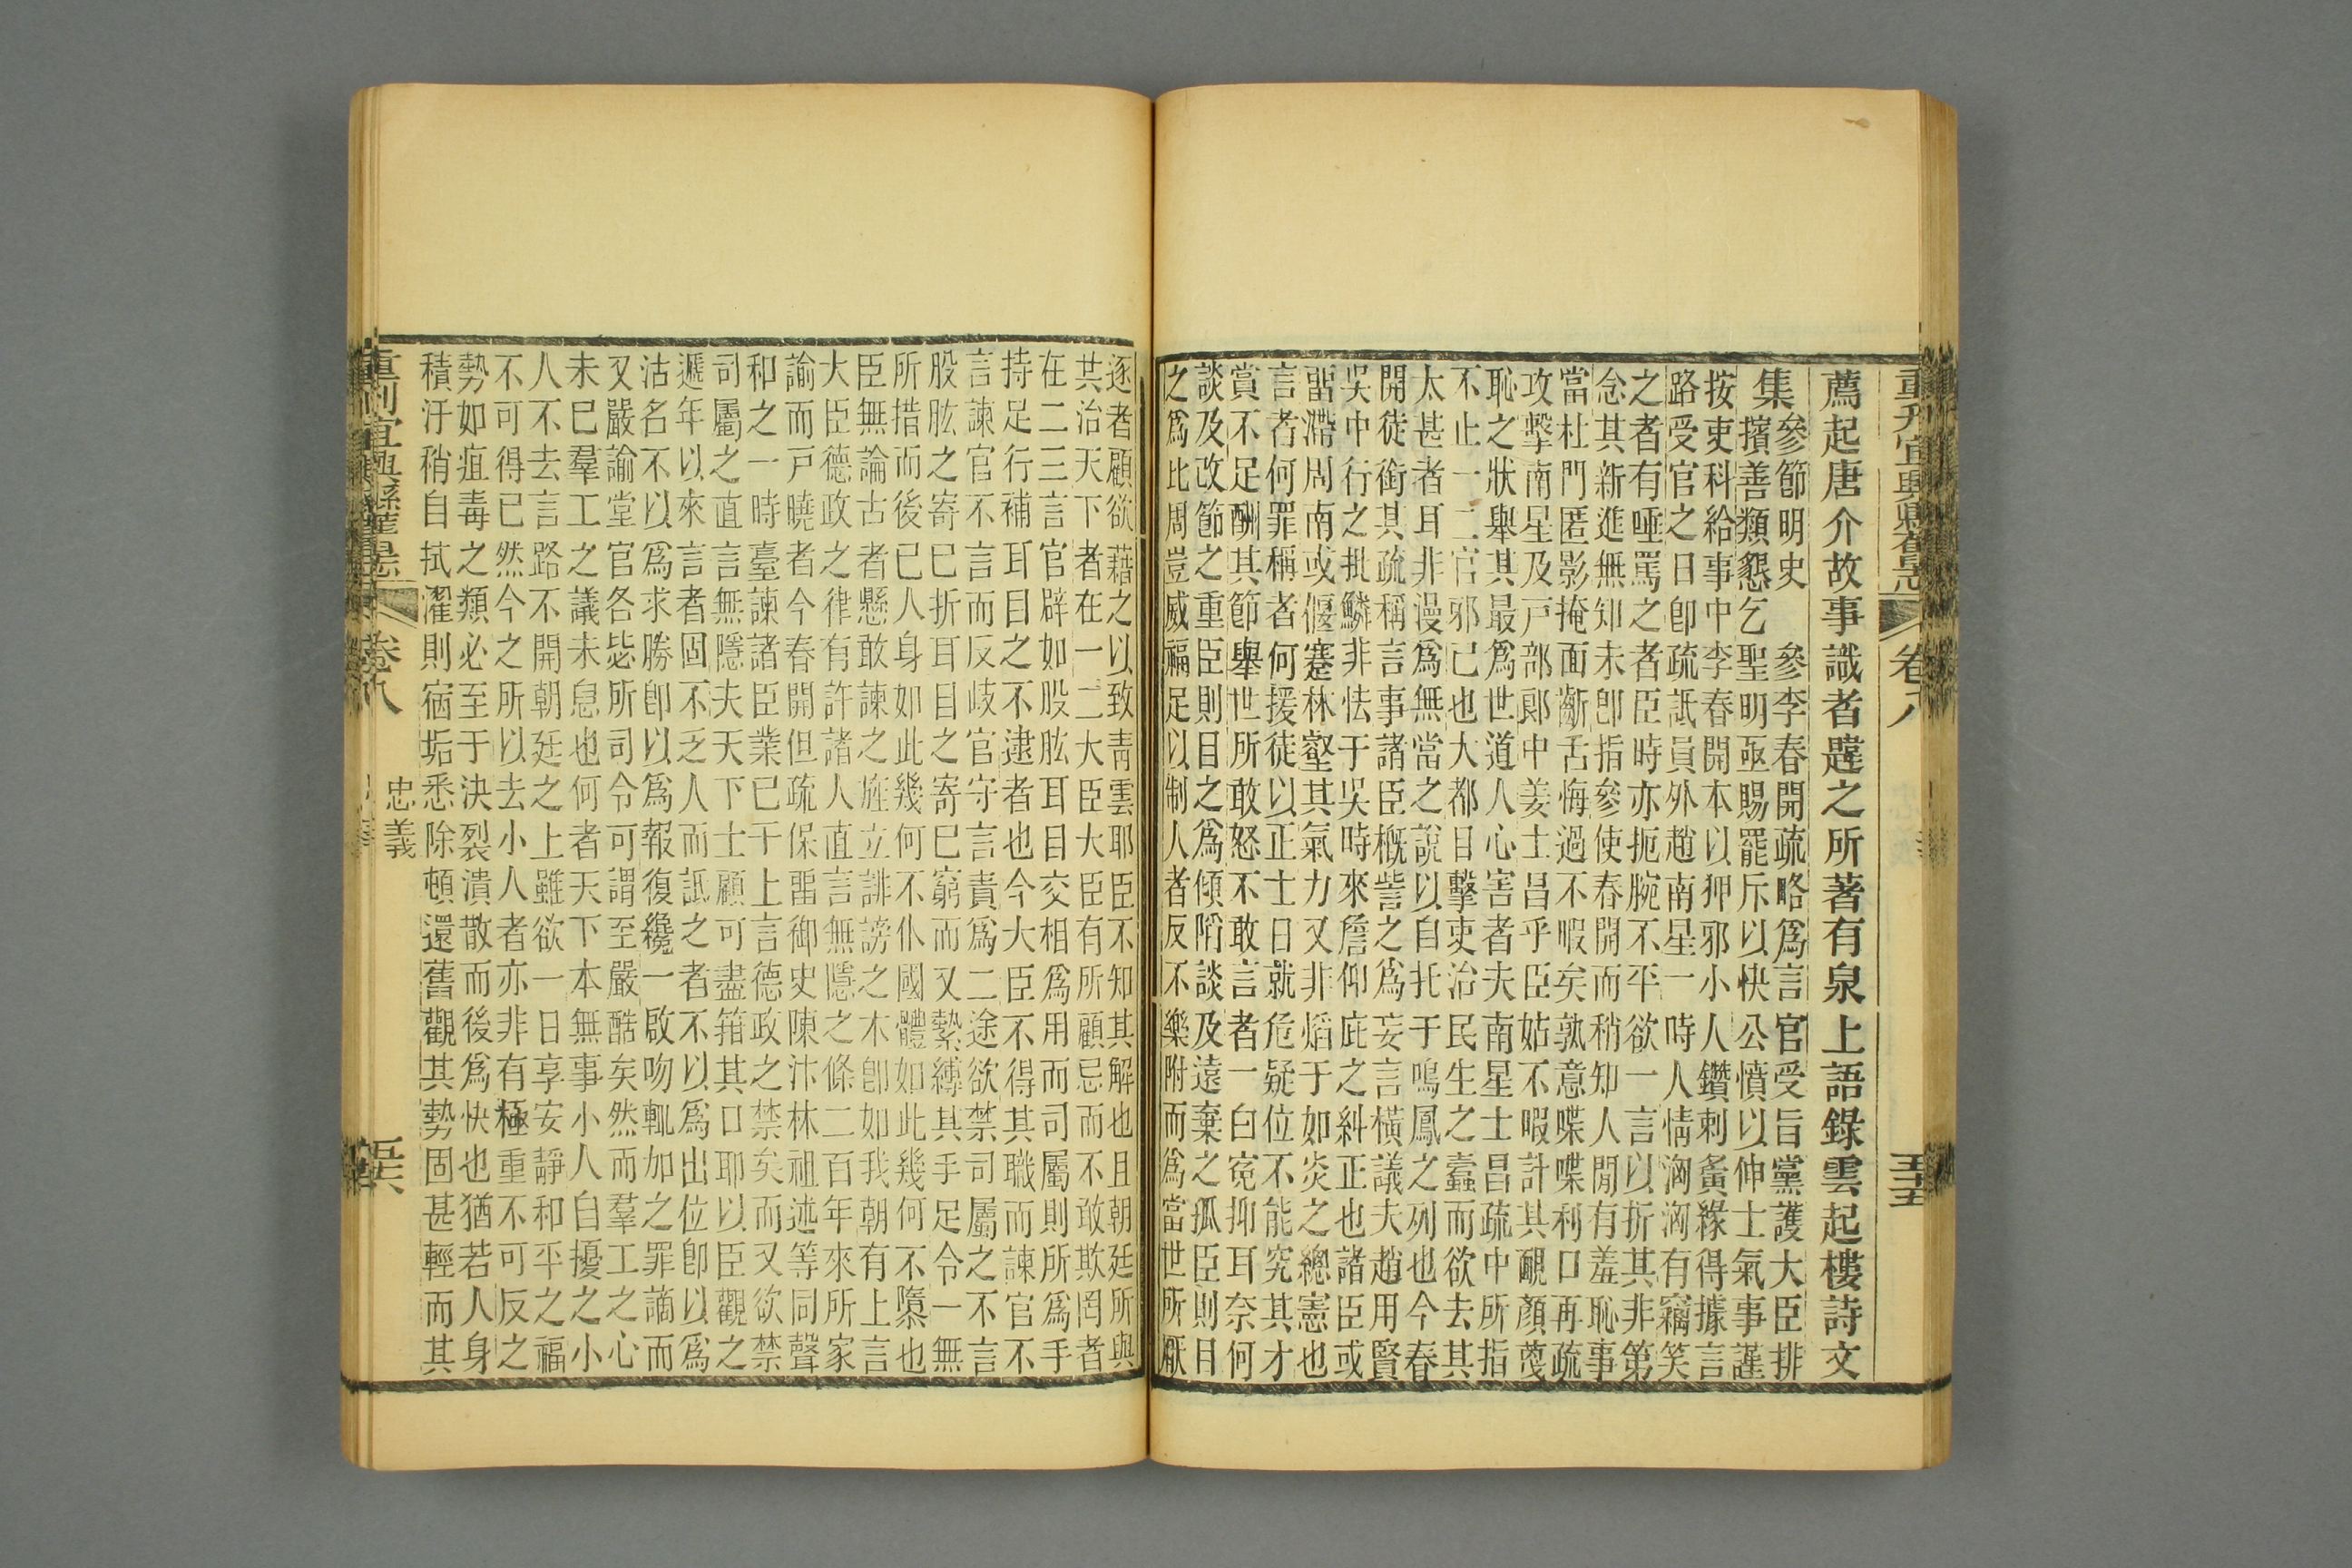 重刊宜興縣舊志 卷八 五十五
薦起唐介故事識者韙之所著有泉上語錄雲起樓詩文
集 參節明史 參李春開疏略爲言官受旨黨護大臣排
擯善類懇乞聖明亟賜罷斥以快公憤以伸士氣事謹
按吏科給事中李春開本以狎邪小人鑽刺夤緣得據言
路受官之日卽疏詆員外趙南星一時人情洶洶有竊笑
之者有唾罵之者臣時亦扼腕不平欲一言以折其非第
念其新進無知未卽指參使春開而稍知人閒有羞恥事
當杜門匿影掩面齰舌悔過不暇矣孰意喋喋利口再疏
攻擊南星及戸部郞中姜士昌乎臣姑不暇計其靦顏蔑
恥之狀舉其最爲世道人心害者夫南星士昌疏中所指
不止一二官邪已也大都目擊吏治民生之蠹而欲去其
太甚者耳非漫爲無當之說以自托于鳴鳳之列也今春
開徒銜其疏稱言事諸臣概訾之爲妄言橫議夫趙用賢
吳中行之批鱗非怯于吳時來詹仰庇之糾正也諸臣或
畱滯周南或偃蹇林壑其氣力又非焰于如炎之總憲也
言者何罪稱者何援徒以正士日就危疑位不能究其才
賞不足酬其節舉世所敢怒不敢言者一白寃抑耳奈何
談及改節之重臣則目之爲傾陷談及遠棄之孤臣則目
之爲比周豈威福足以制人者反不樂附而爲當世所厭
逐者顧欲藉之以致靑雲耶臣不知其解也且朝廷所與
共治天下者在一二大臣大臣有所顧忌而不敢欺罔者
在二三言官辟如股肱耳目交相爲用而司屬則所爲手
持足行補耳目之不逮者也今大臣不得其職而諫官不
言諫官不言而反岐官守言責爲二途欲禁司屬之不言
股肱之寄已折耳目之寄已窮而又縶縛其手足令一無
所措而後已人身如此幾何不仆國體如此幾何不隳也
臣無論古者懸敢諫之旌立誹謗之木卽如我朝有上言
大臣德政之律有許諸人直言無隱之條二百年來所家
諭而戸曉者今春開但疏保畱御史陳沐林祖述等同聲
和之一時臺諫諸臣業已干上言德政之禁矣而又欲禁
司屬之直言無隱夫天下士顧可盡箝其口耶以臣觀之
遞年以來言者固不乏人而詆之者不以爲出位卽以爲
沽名不以爲求勝卽以爲報復纔一啟吻輒加之罪謫而
又嚴諭堂官各毖所司令可謂至嚴酷矣然而羣工之心
未已羣工之議未息也何者天下本無事小人自擾之小
人不去言路不開朝廷之上雖欲一日享安靜和平之福
不可得已然今之所以去小人者亦非有極重不可反之
勢如疽毒之類必至于決裂潰散而後爲快也猶若人身
積汙稍自拭濯則宿垢悉除頓還舊觀其勢固甚輕而其
忠義
重刊宜興縣舊志 卷八 五十六